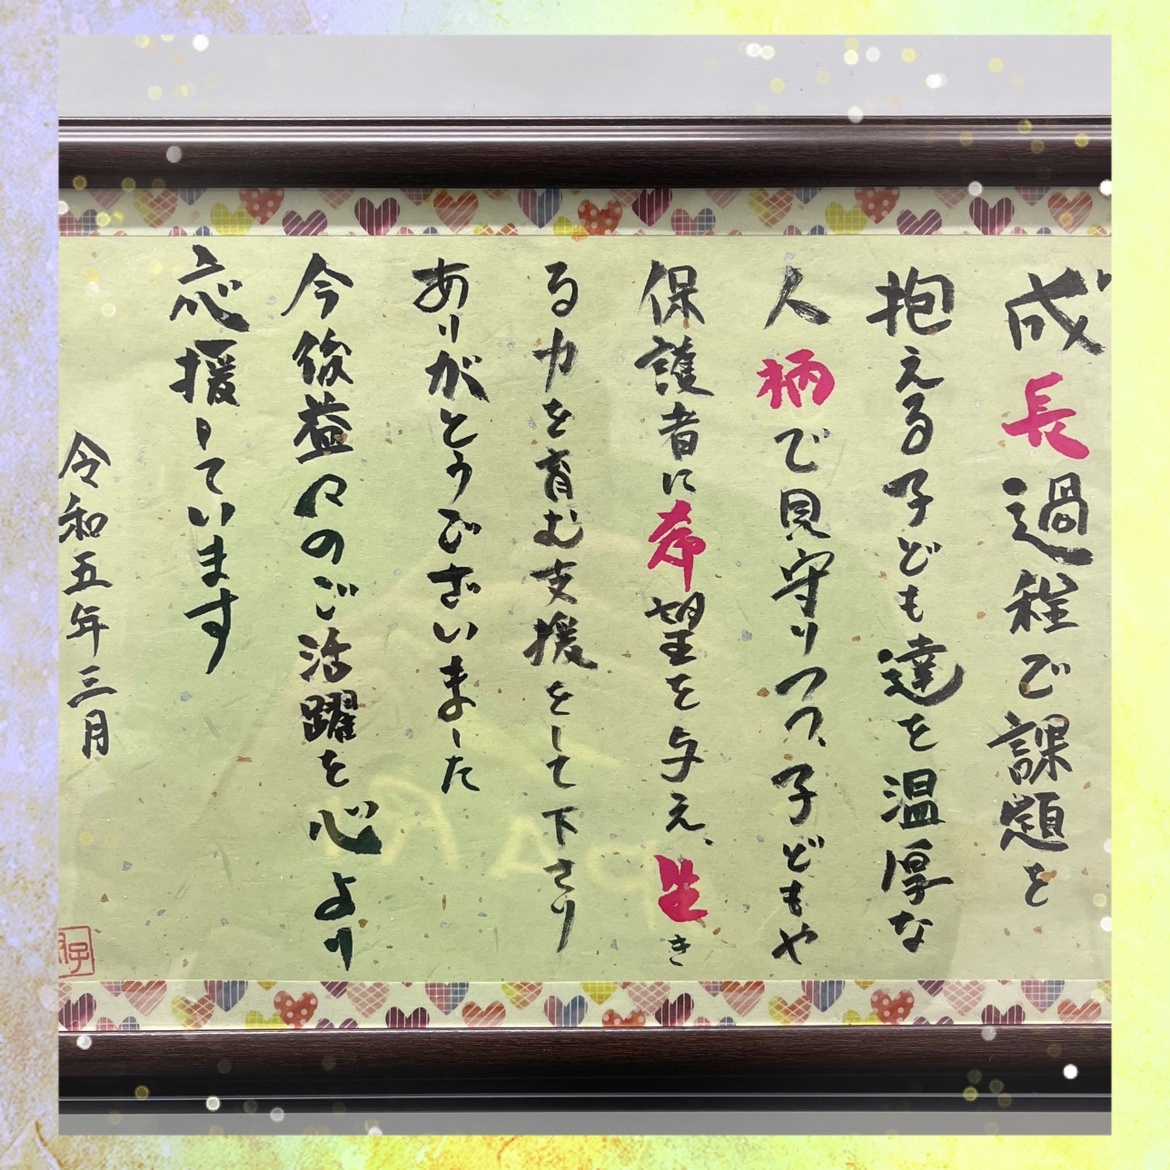 成長過程で課題を
抱える子ども達を温厚な
人柄で見守りつつ、子どもや
保護者に希望を与え、生き
る力を育む支援をして下さり
ありがとうございました
今後益々のご活躍を心より
応援しています
令和五年三月